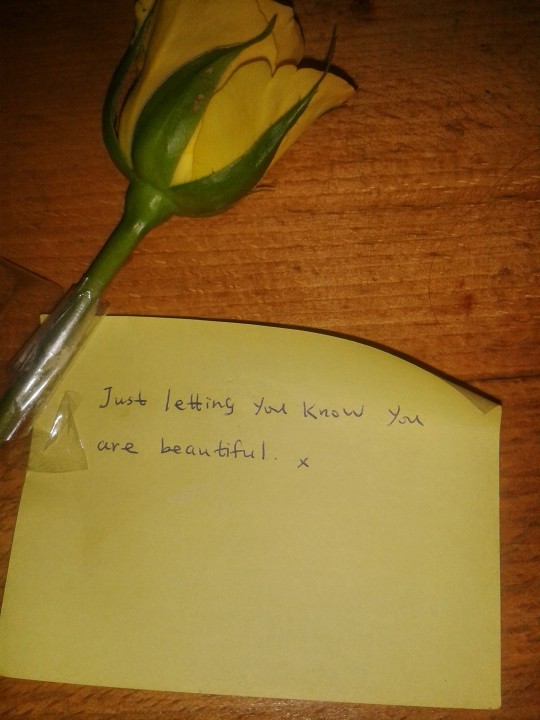 Just letting you know you
are beautiful. x